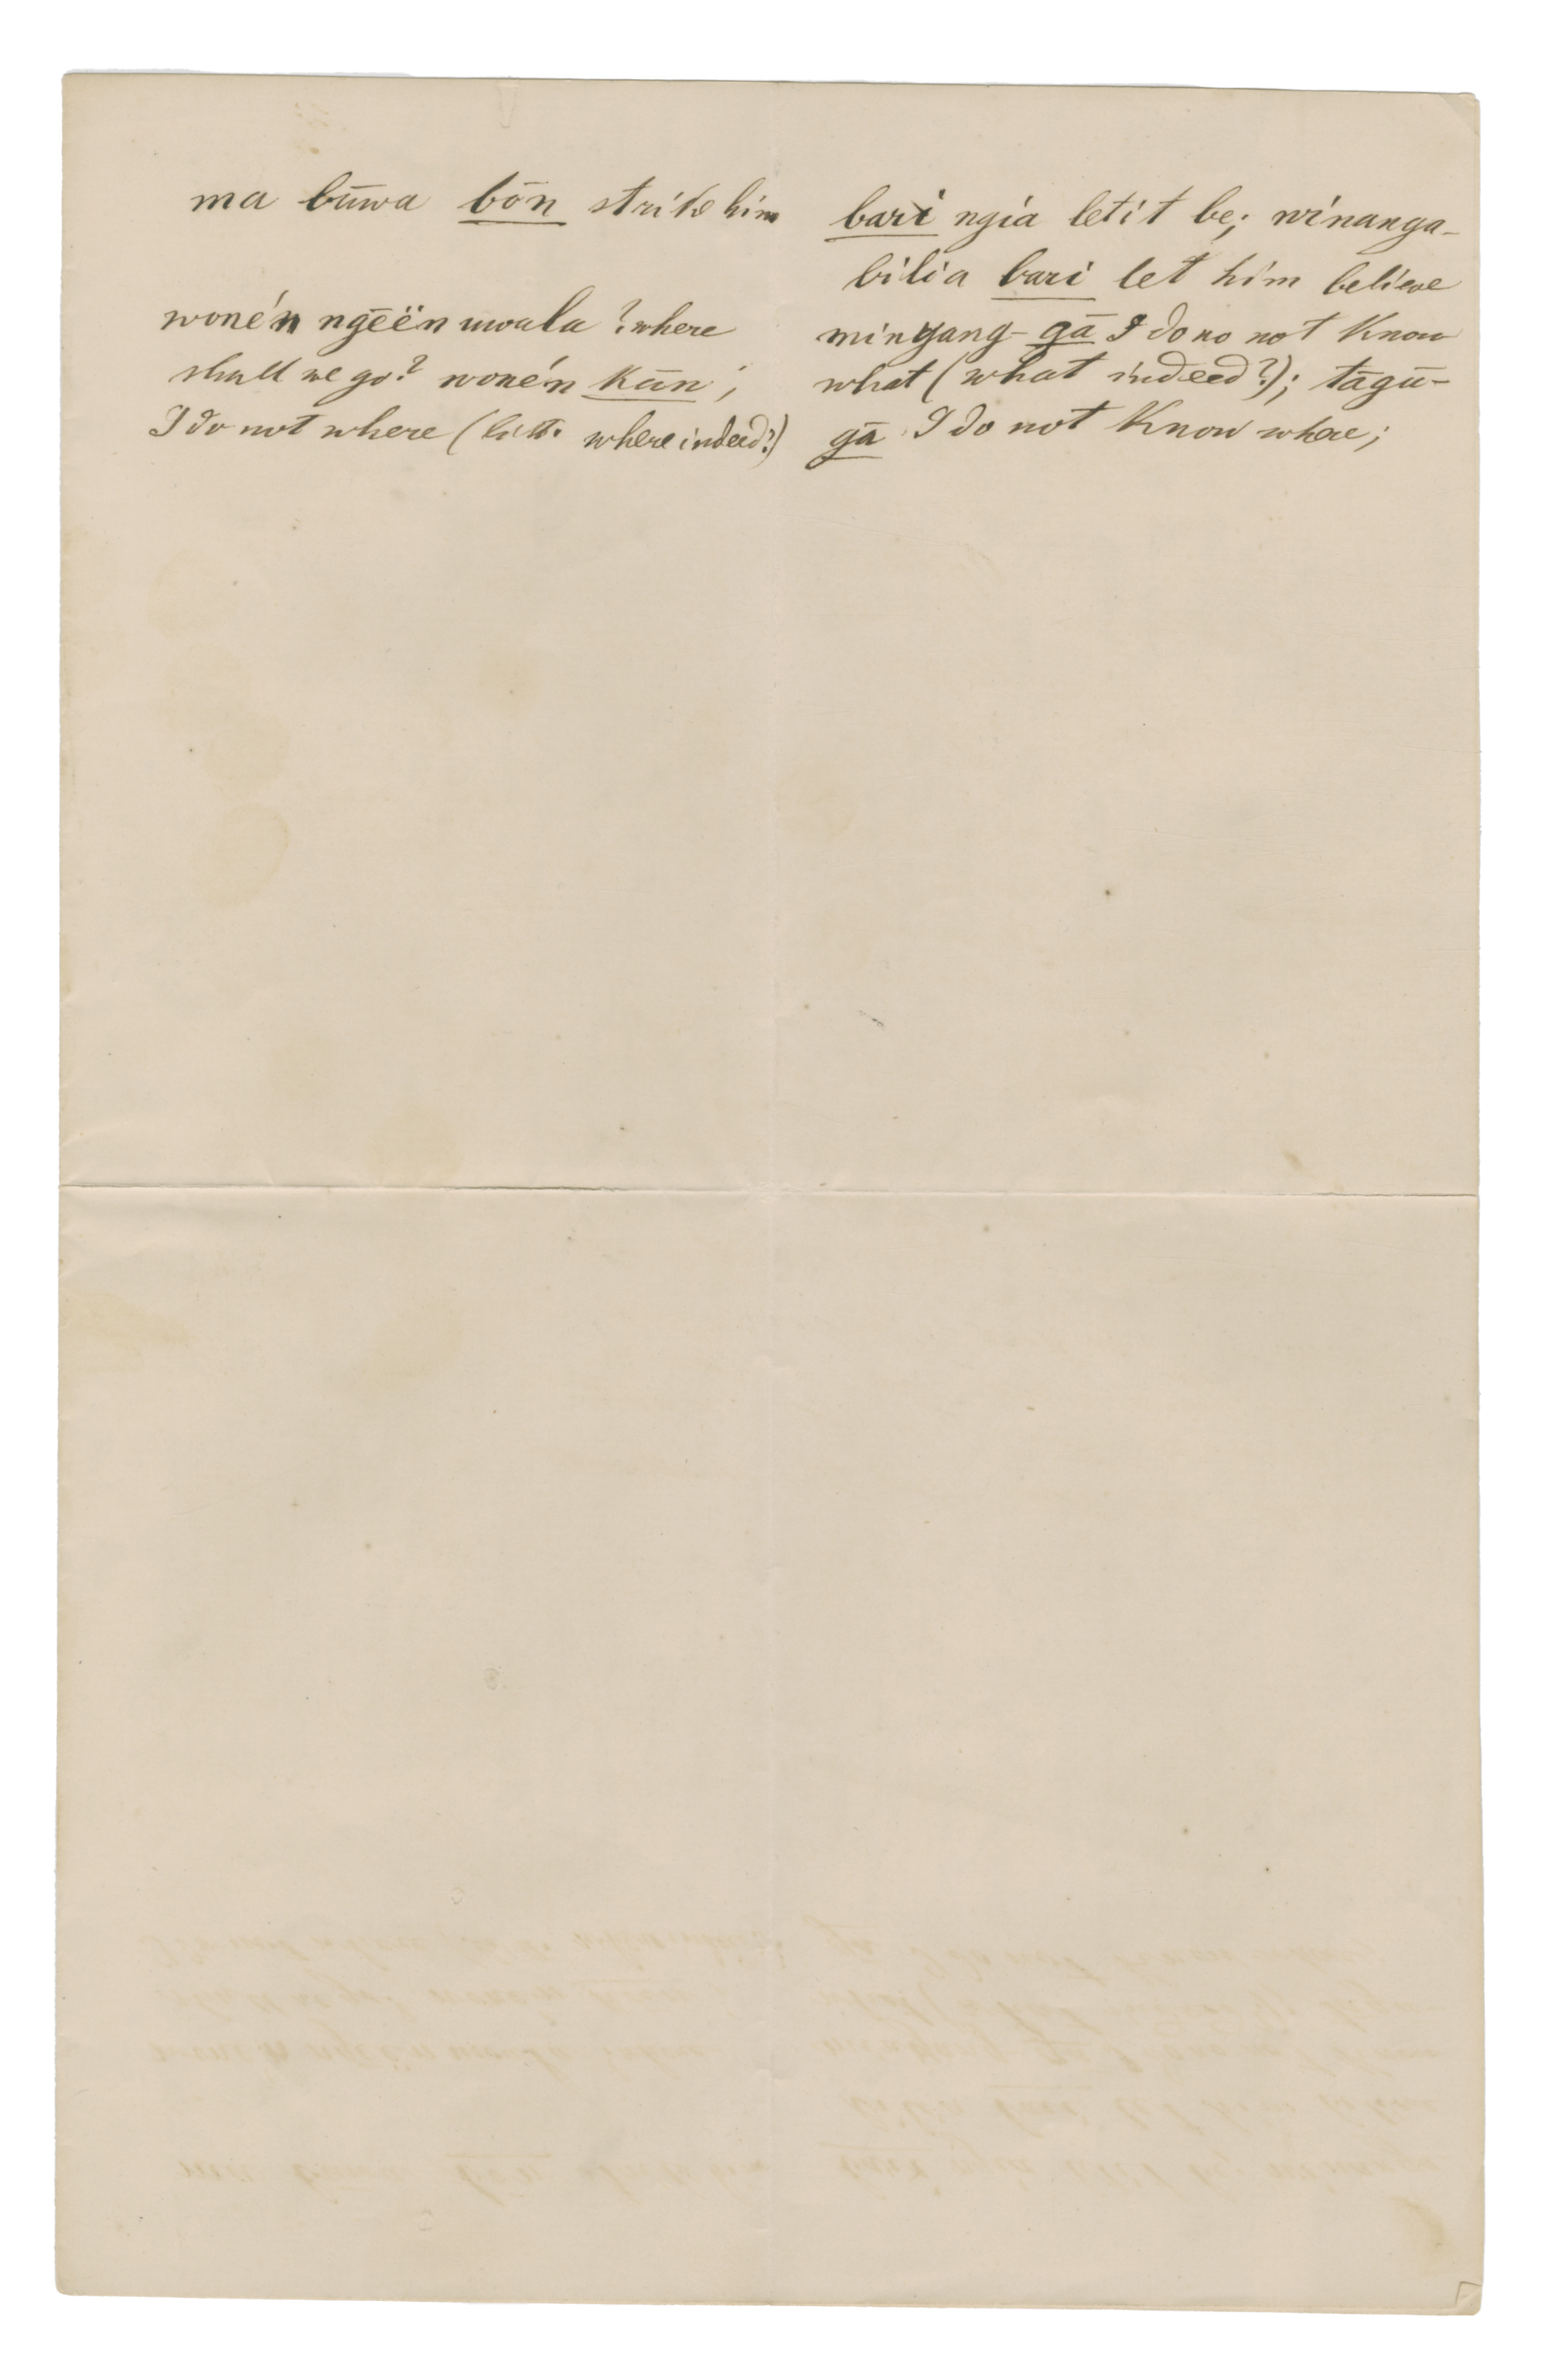 ma būwa bōn strike him
wonén ngēën uwala? where
shall we go? wonén kūn;
I do not where ( where indeed?)
bari ngia let it be; winanga-
bilia bari let him believe
minyang-gā I do no not know
what (what indeed?); tāgū-
gā I do not know where;